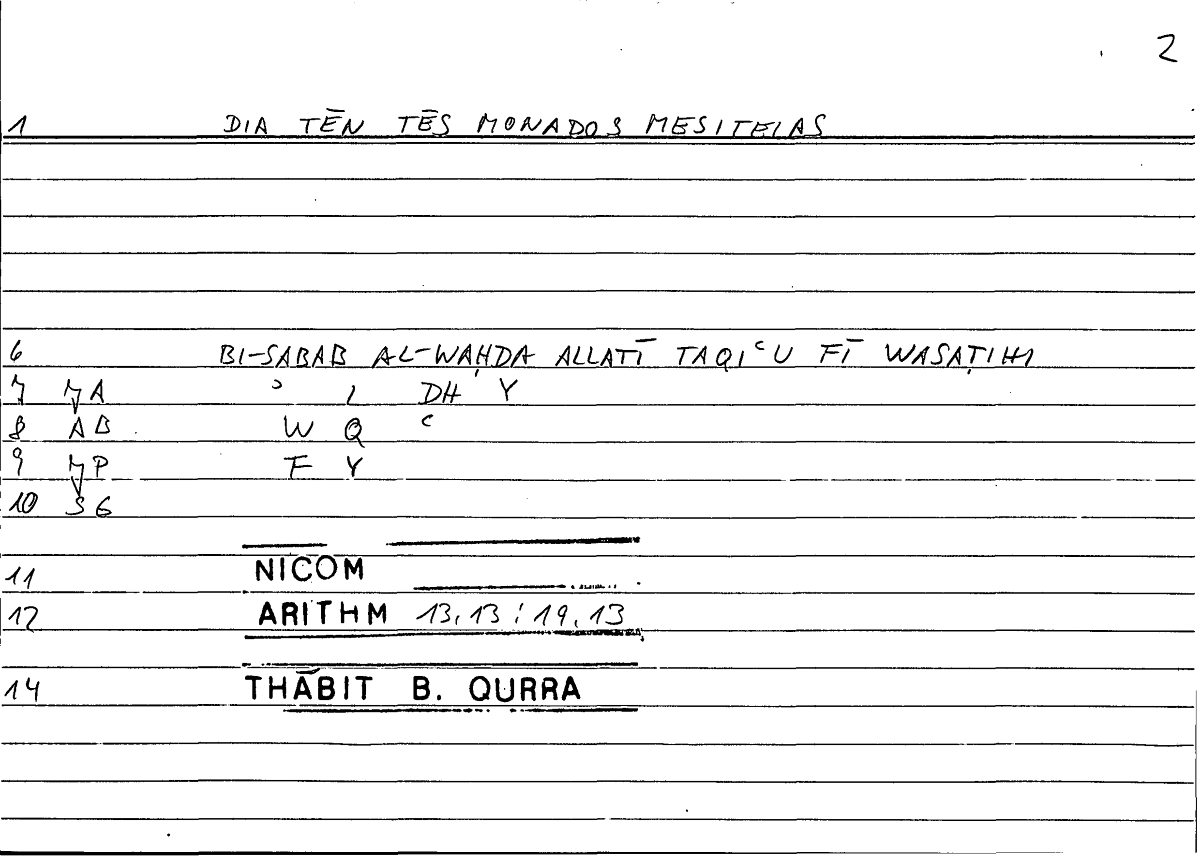 2
1 DIA TĒN TĒS MONADOS MESITEIAS
6 BI-SABAB AL-WAḤDA ALLATĪ TAQIʿU FĪ WASAṬIHI
7 A ʾ I DH Y
8 AB W Q ʿ
9 P F Y
10 SG
11 NICOM
12 ARITHM 13,13 : 19,13
14 THĀBIT B. QURRA